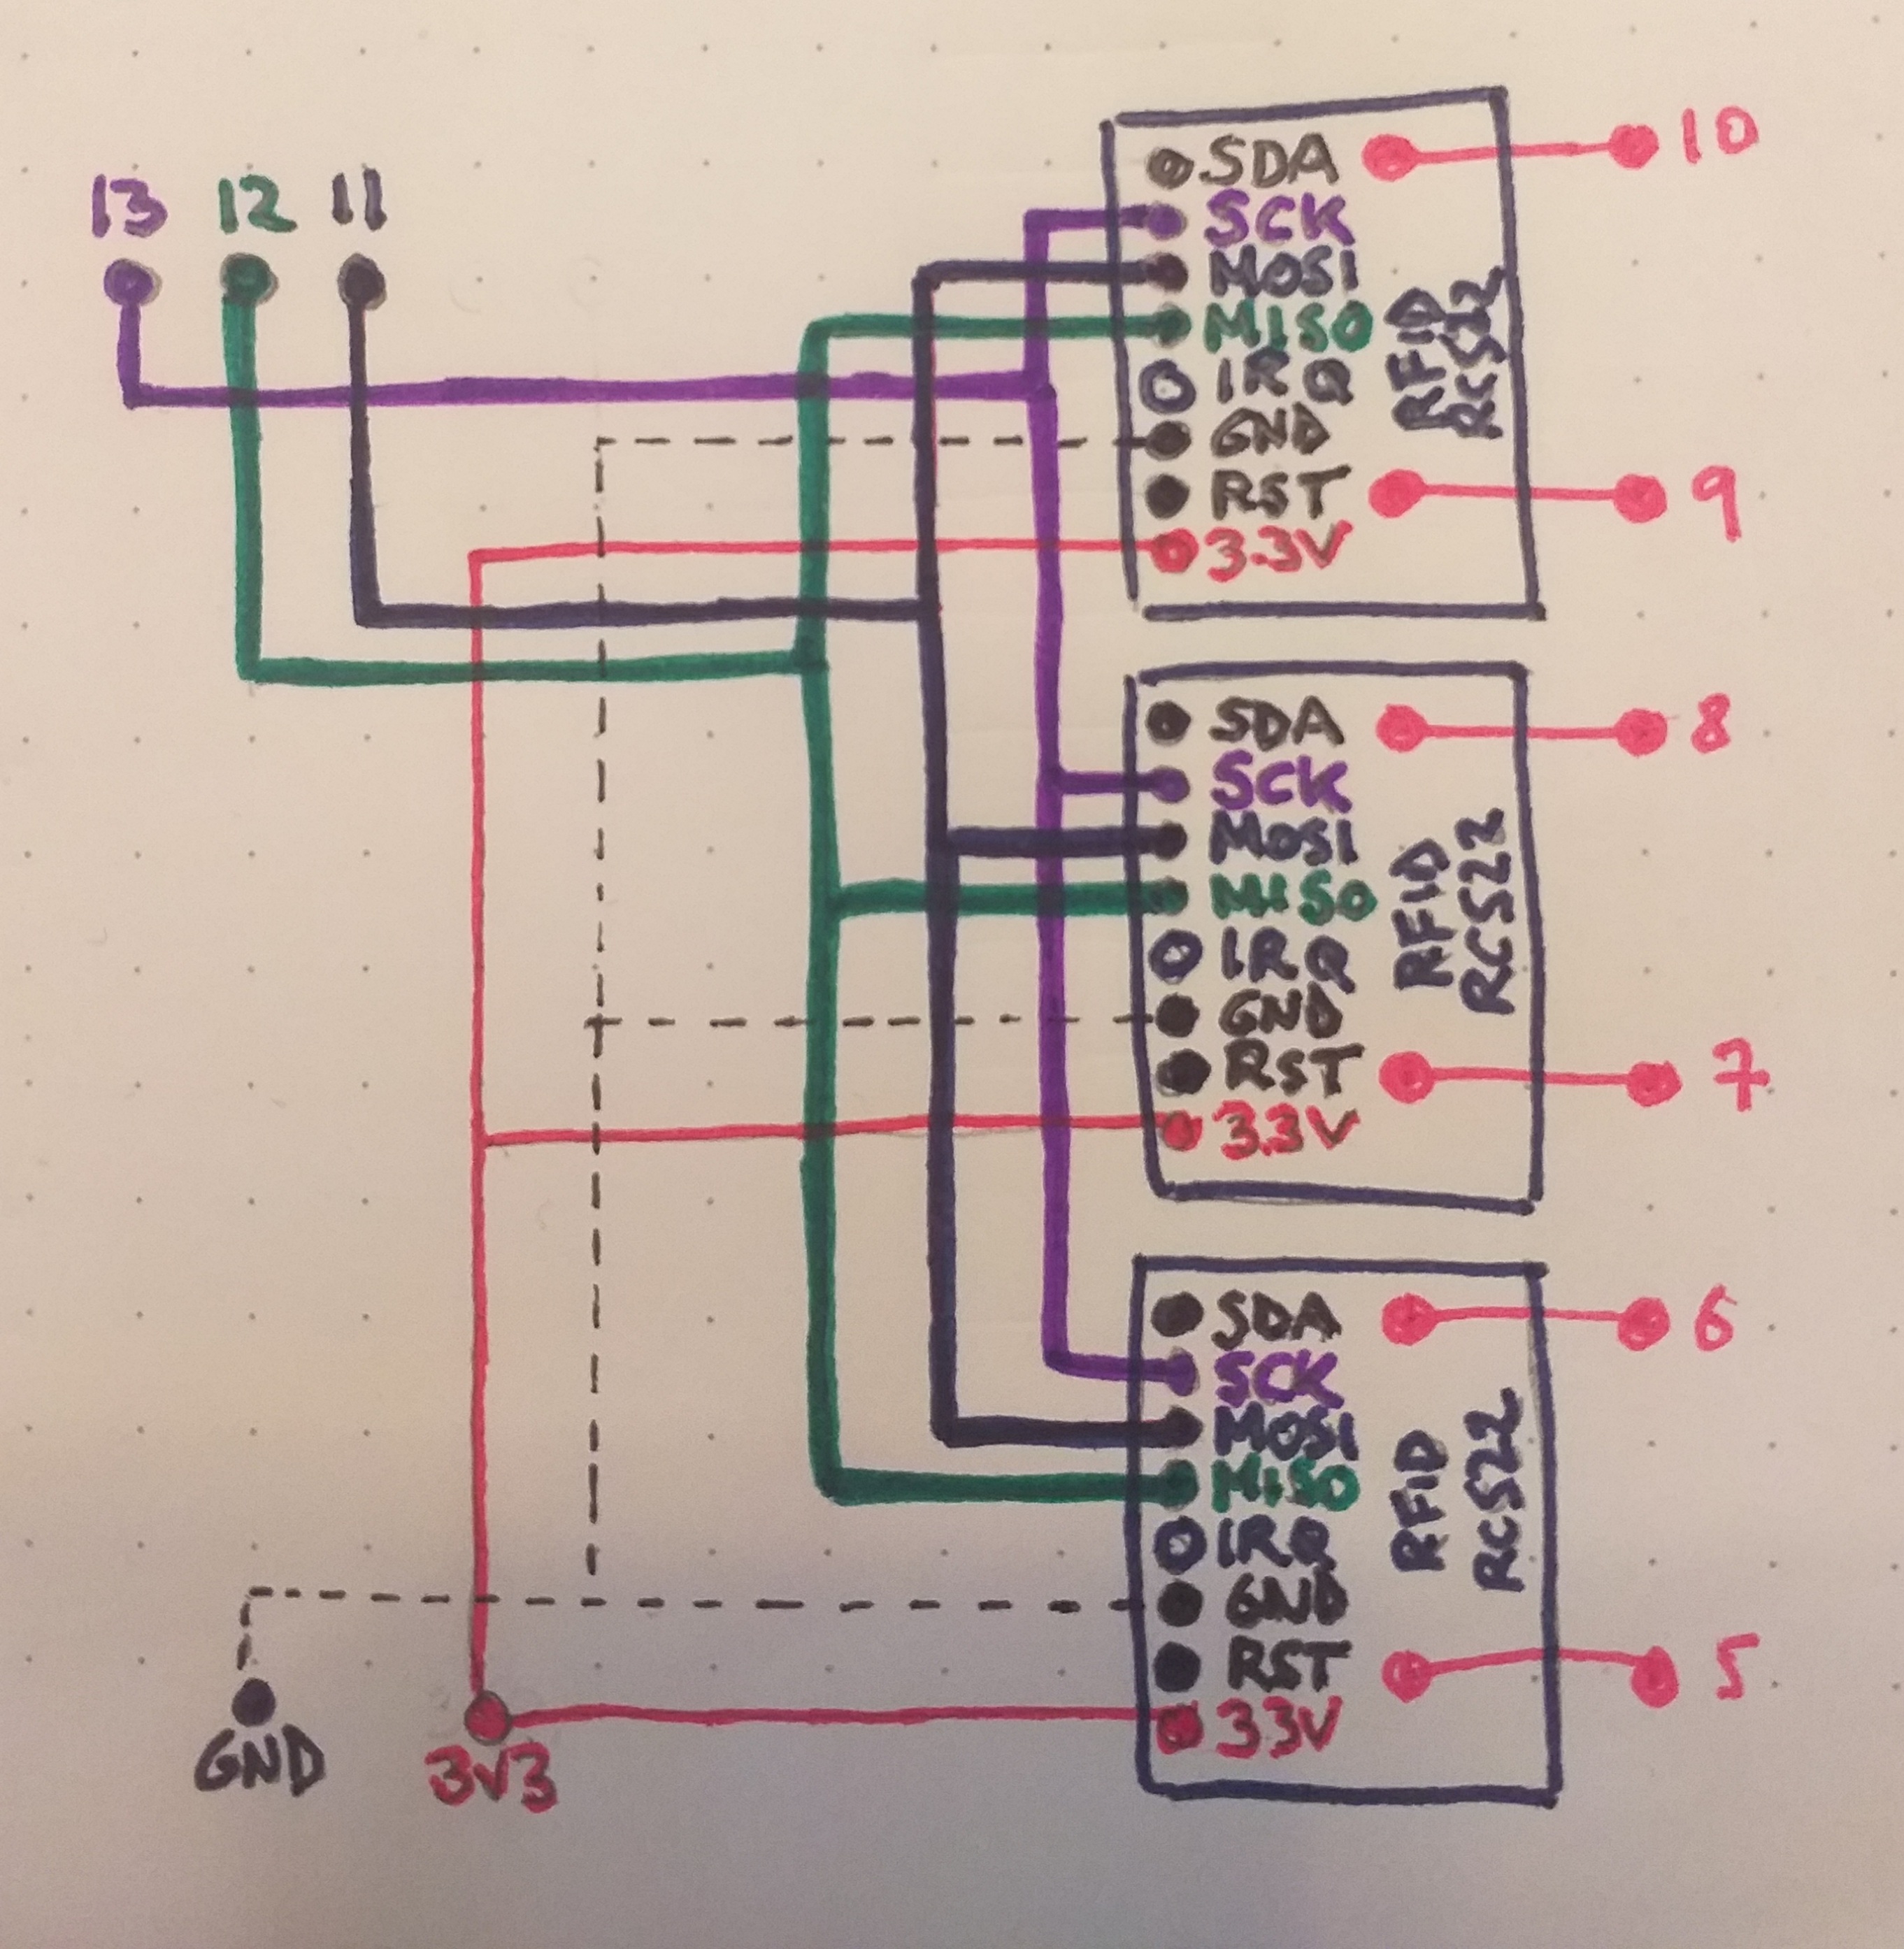 13 12 11
SDA 10
SCK
MOSI
MISO
IRQ
GND
RST 9
3.3V
RFID
RC522
SDA 8
SCK
MOSI
MISO
IRQ
GND
RST 7
3.3V
RFID
RC522
SDA 6
SCK
MOSI
MISO
IRQ
GND
RST 5
33V
RFID
RC522
GND
3V3